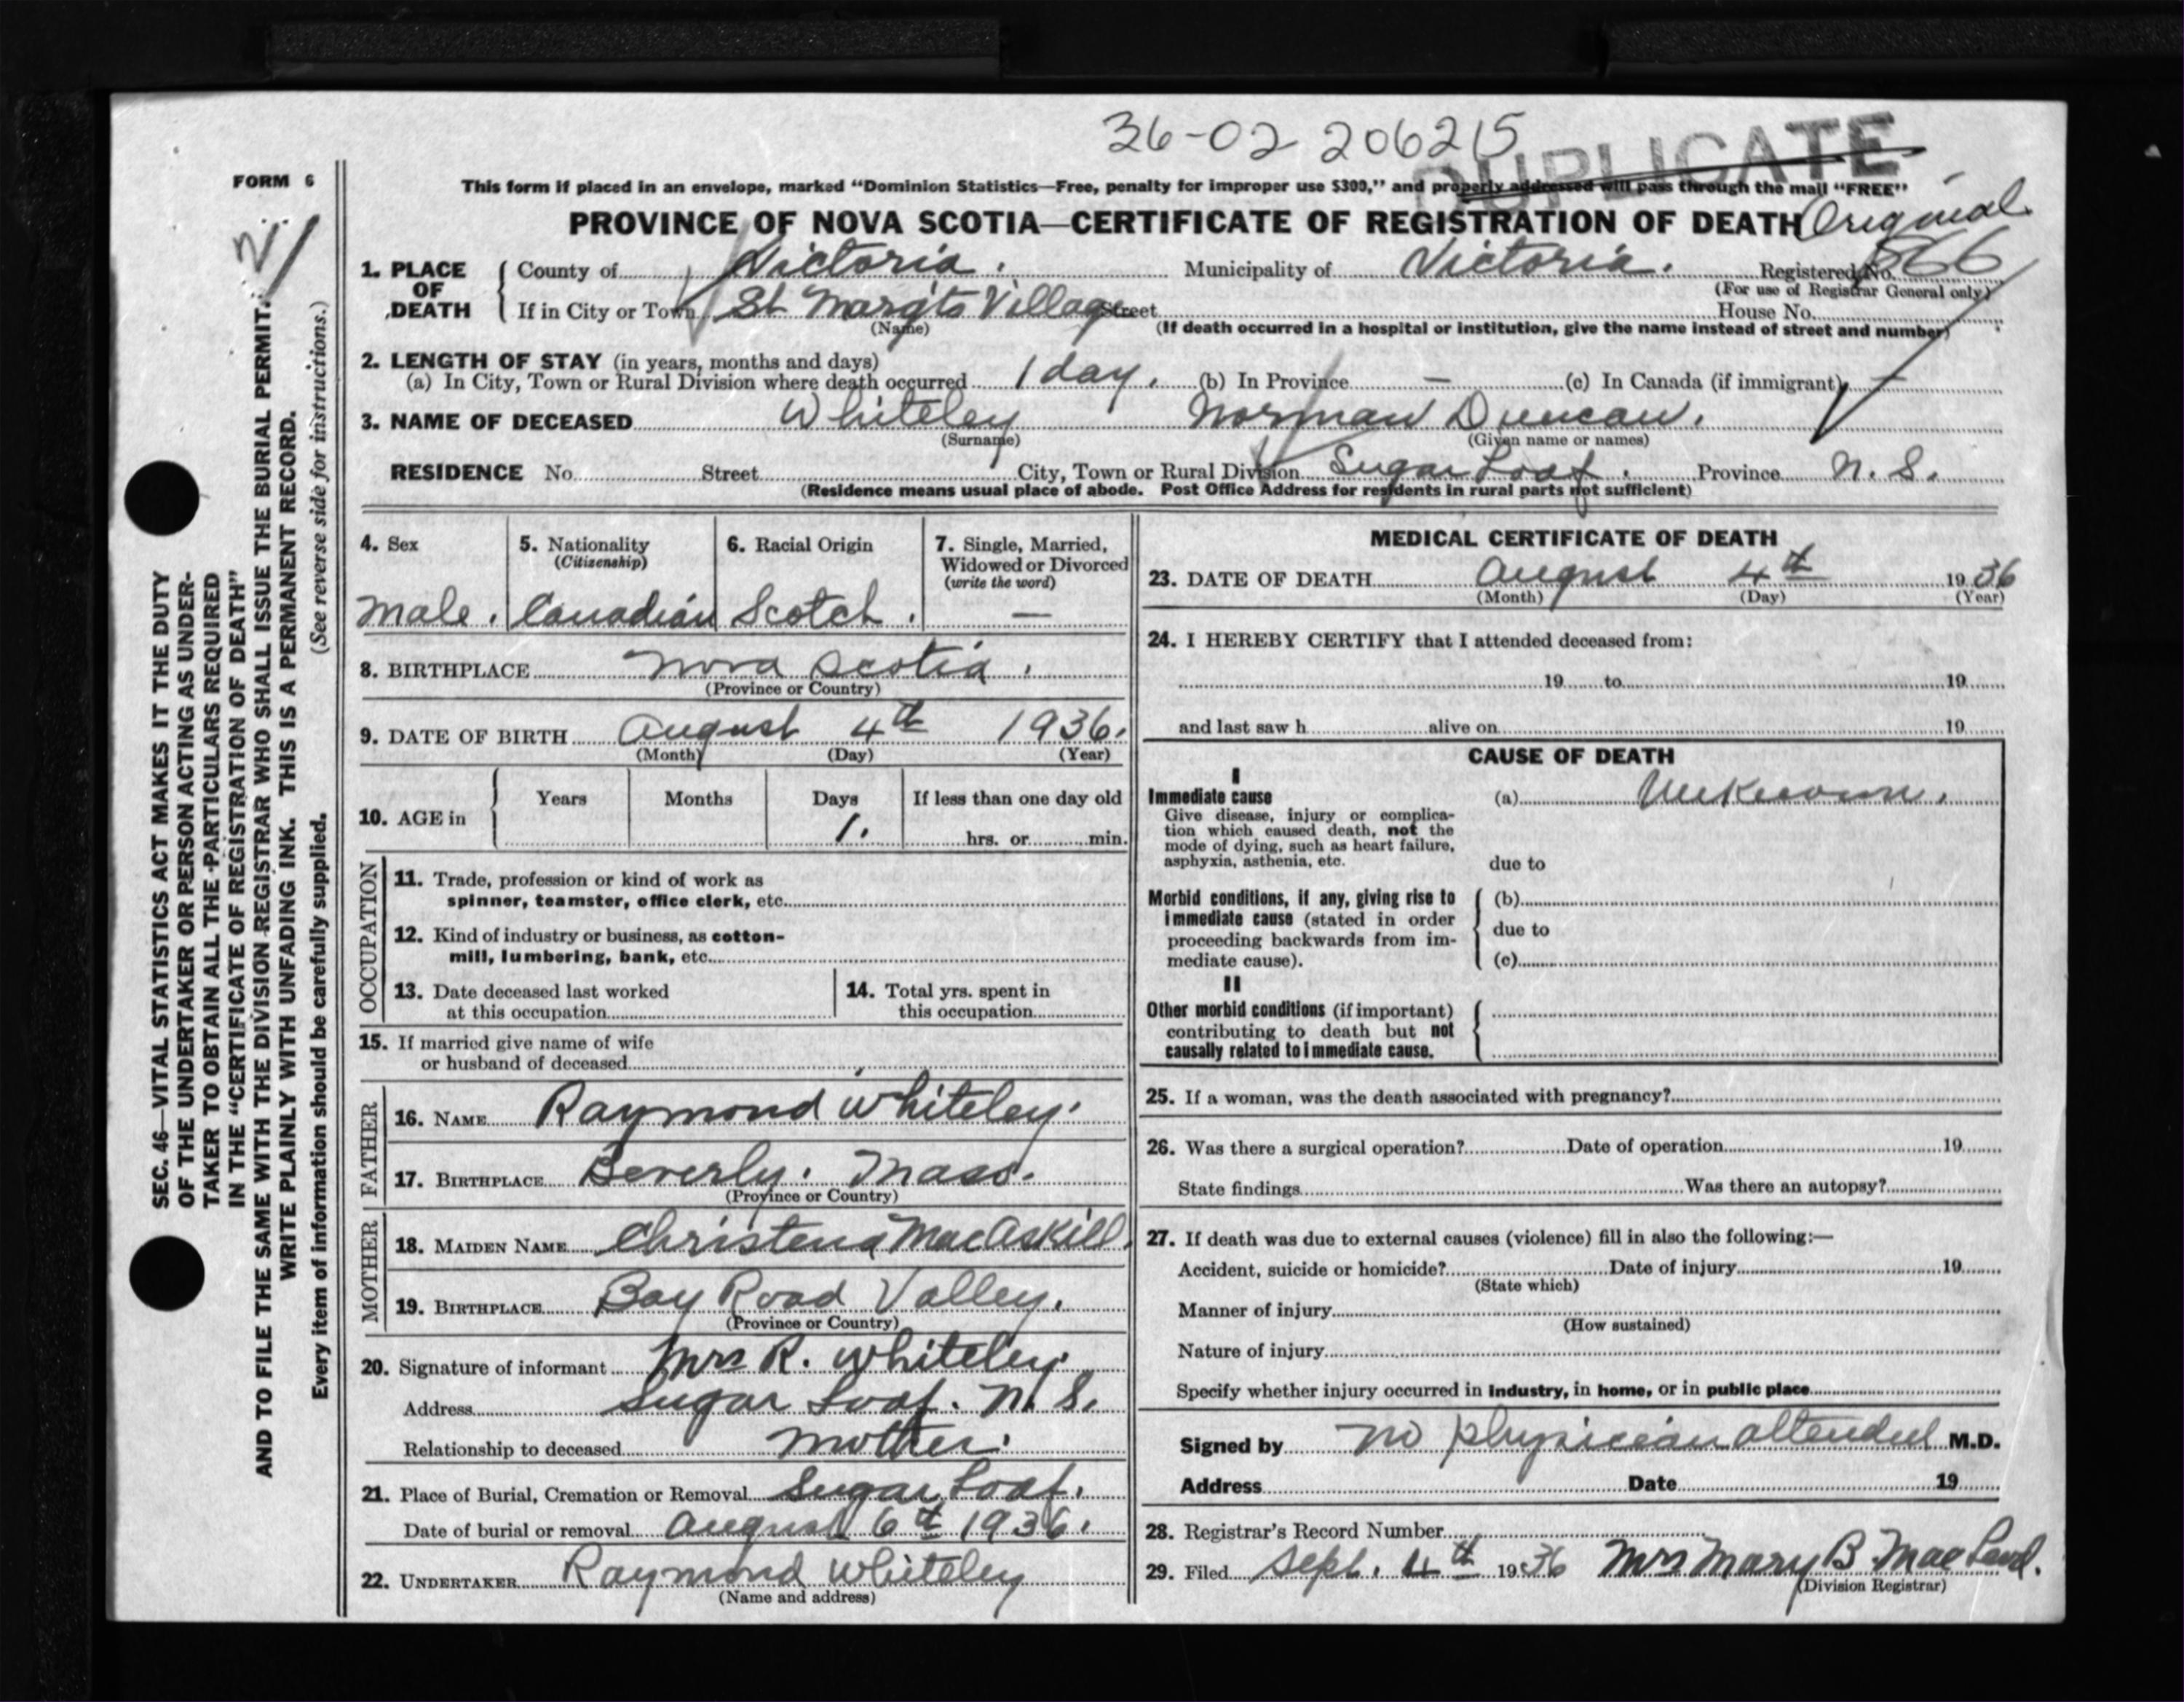 36-02 206215
DUPLICATE
FORM 6
This form if placed in an envelope, marked “Dominion Statistics—Free, penalty for improper use $300,” and properly addressed will pass through the mail “FREE”
PROVINCE OF NOVA SCOTIA—CERTIFICATE OF REGISTRATION OF DEATH Original
1. PLACE OF DEATH County of Victoria. Municipality of Victoria. Registered No. 866
(For use of Registrar General only)
If in City or Town St Margts Village Street House No.
(Name) (If death occurred in a hospital or institution, give the name instead of street and number)
2. LENGTH OF STAY (in years, months and days)
(a) In City, Town or Rural Division where death occurred 1 day. (b) In Province — (c) In Canada (if immigrant) —
3. NAME OF DECEASED Whiteley Norman Duncan.
(Surname) (Given name or names)
RESIDENCE No. Street City, Town or Rural Division Sugar Loaf. Province N. S.
(Residence means usual place of abode. Post Office Address for residents in rural parts not sufficient)
4. Sex
Male.
5. Nationality
(Citizenship)
Canadian
6. Racial Origin
Scotch.
7. Single, Married,
Widowed or Divorced
(write the word)
—
8. BIRTHPLACE Nova Scotia.
(Province or Country)
9. DATE OF BIRTH August 4th 1936.
(Month) (Day) (Year)
10. AGE in Years Months Days If less than one day old
1. hrs. or min.
OCCUPATION
11. Trade, profession or kind of work as
spinner, teamster, office clerk, etc.
12. Kind of industry or business, as cotton-
mill, lumbering, bank, etc.
13. Date deceased last worked
at this occupation
14. Total yrs. spent in
this occupation
15. If married give name of wife
or husband of deceased
FATHER
16. NAME Raymond Whiteley.
17. BIRTHPLACE Beverly. Mass.
(Province or Country)
MOTHER
18. MAIDEN NAME Christena MacAskill.
19. BIRTHPLACE Bay Road Valley.
(Province or Country)
20. Signature of informant Mrs R. Whiteley.
Address Sugar Loaf. N. S.
Relationship to deceased Mother.
21. Place of Burial, Cremation or Removal Sugar Loaf.
Date of burial or removal August 6th 1936.
22. UNDERTAKER Raymond Whiteley
(Name and address)
MEDICAL CERTIFICATE OF DEATH
23. DATE OF DEATH August 4th 1936
(Month) (Day) (Year)
24. I HEREBY CERTIFY that I attended deceased from:
19 to 19
and last saw h alive on 19
CAUSE OF DEATH
I
Immediate cause
Give disease, injury or complica-
tion which caused death, not the
mode of dying, such as heart failure,
asphyxia, asthenia, etc.
(a) Unknown.
due to
Morbid conditions, if any, giving rise to
immediate cause (stated in order
proceeding backwards from im-
mediate cause).
(b)
due to
(c)
II
Other morbid conditions (if important)
contributing to death but not
causally related to immediate cause.
25. If a woman, was the death associated with pregnancy?
26. Was there a surgical operation? Date of operation 19
State findings Was there an autopsy?
27. If death was due to external causes (violence) fill in also the following:—
Accident, suicide or homicide? Date of injury 19
(State which)
Manner of injury
(How sustained)
Nature of injury
Specify whether injury occurred in industry, in home, or in public place
Signed by No physician attended M.D.
Address Date 19
28. Registrar's Record Number
29. Filed Sept. 4th 1936 Mrs Mary B. MacLeod.
(Division Registrar)
SEC. 46—VITAL STATISTICS ACT MAKES IT THE DUTY
OF THE UNDERTAKER OR PERSON ACTING AS UNDER-
TAKER TO OBTAIN ALL THE PARTICULARS REQUIRED
IN THE “CERTIFICATE OF REGISTRATION OF DEATH”
AND TO FILE THE SAME WITH THE DIVISION REGISTRAR WHO SHALL ISSUE THE BURIAL PERMIT.
WRITE PLAINLY WITH UNFADING INK. THIS IS A PERMANENT RECORD.
Every item of information should be carefully supplied. (See reverse side for instructions.)